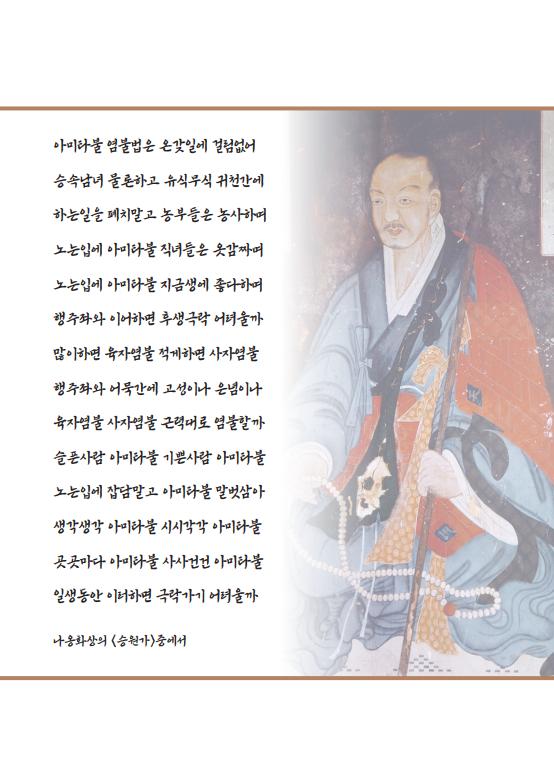 아미타불 염불법은 온갖일에 걸림없어
승속남녀 물론하고 유식무식 귀천간에
하는일을 폐치말고 농부들은 농사하며
노는입에 아미타불 직녀들은 옷감짜며
노는입에 아미타불 지금생에 좋다하며
행주좌와 이어하면 후생극락 어려울까
많이하면 육자염불 적게하면 사자염불
행주좌와 어묵간에 고성이나 은념이나
육자염불 사자염불 근력대로 염불할까
슬픈사람 아미타불 기쁜사람 아미타불
노는입에 잡담말고 아미타불 말벗삼아
생각생각 아미타불 시시각각 아미타불
곳곳마다 아미타불 사사건건 아미타불
일생동안 이러하면 극락가기 어려울까
나옹화상의 <승원가>중에서